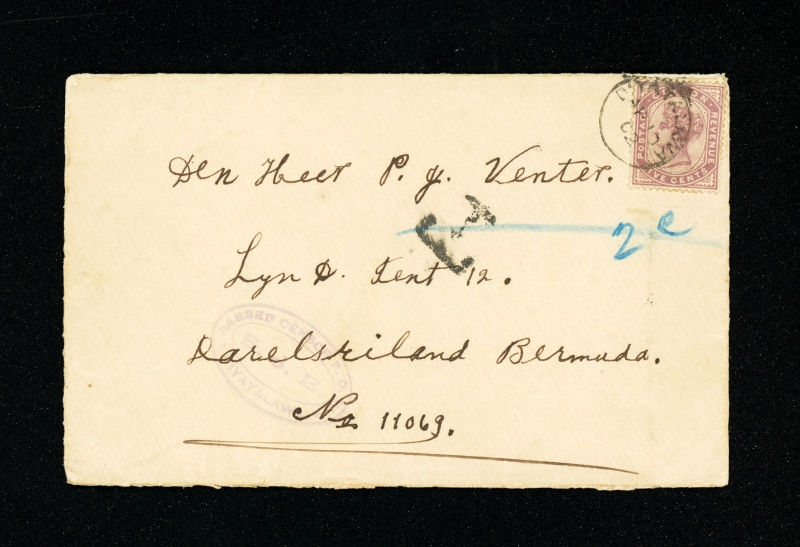 Den Heer P. J. Venter.
2c
Lyn D. Tent 12.
Darelsriland Bermuda.
No 11069.
POSTAGE
CEYLON
REVENUE
FIVE CENTS
DIYATALAWA
T
PASSED CENSOR P.O.
DIYATALAWA